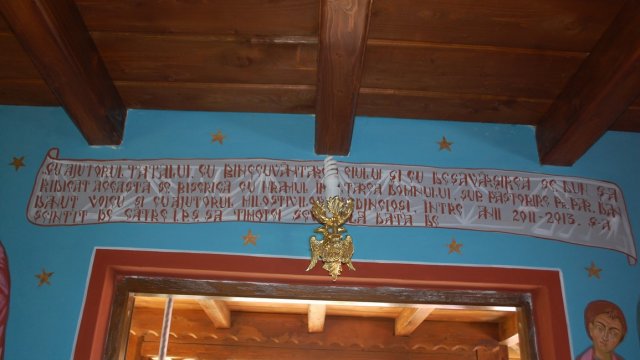 CU AJUTORUL TATĂLUI, CU BINECUVÎNTAREA FIULUI ȘI CU DESĂVÂRȘIREA SF. DUH. S-A
RIDICAT ACEASTA SF BISERICĂ CU HRAMUL DOMNULUI, SUB PĂSTORIREA PR. PAR. DAN
DĂNUȚ VOICU CU AJUTORUL MILOSTIVILOR CREDINCIOȘI. ÎNTRE ANII 2011-2013. S-A
SFINȚIT DE CĂTRE I.P.S. SA TIMOTEI LA DATA DE